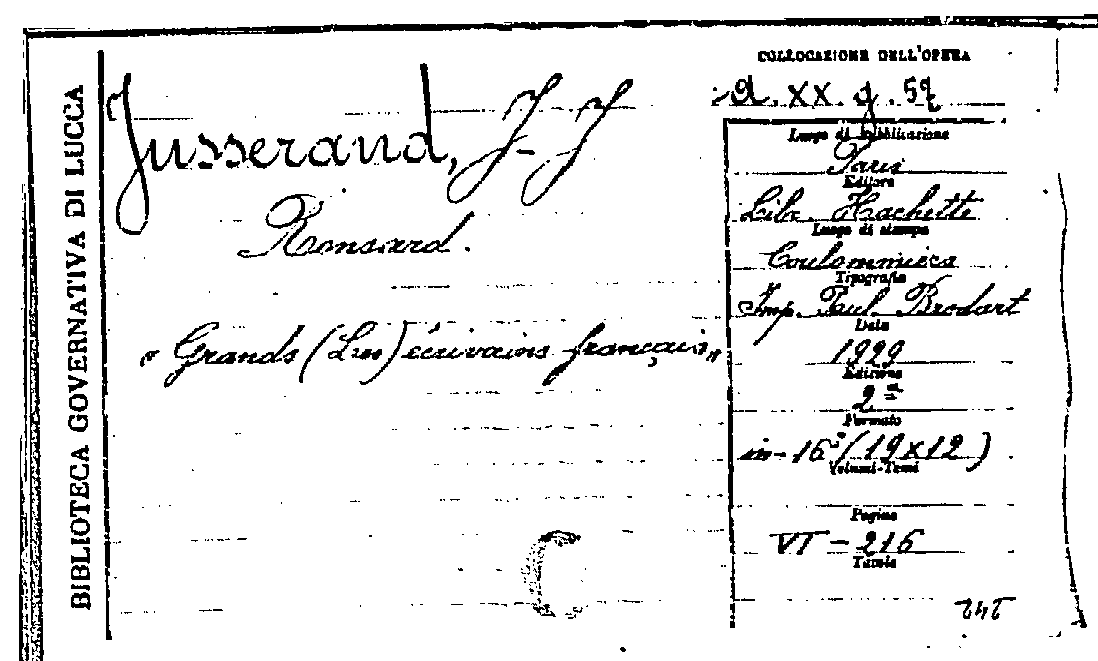 BIBLIOTECA GOVERNATIVA DI LUCCA
COLLOCAZIONE DELL'OPERA
Jusserand, J-J
Ronsard.
"Grands (Les) écrivains français"
Luogo di pubblicazione
Paris
Editore
Libr. Hachette
Luogo di stampa
Coulommiers
Tipografia
Imp. Paul Brodart
Data
1929
Edizione
2ª
Formato
in-16° (19x12)
Volumi-Tomi
Pagine
VI-216
Tavole
C